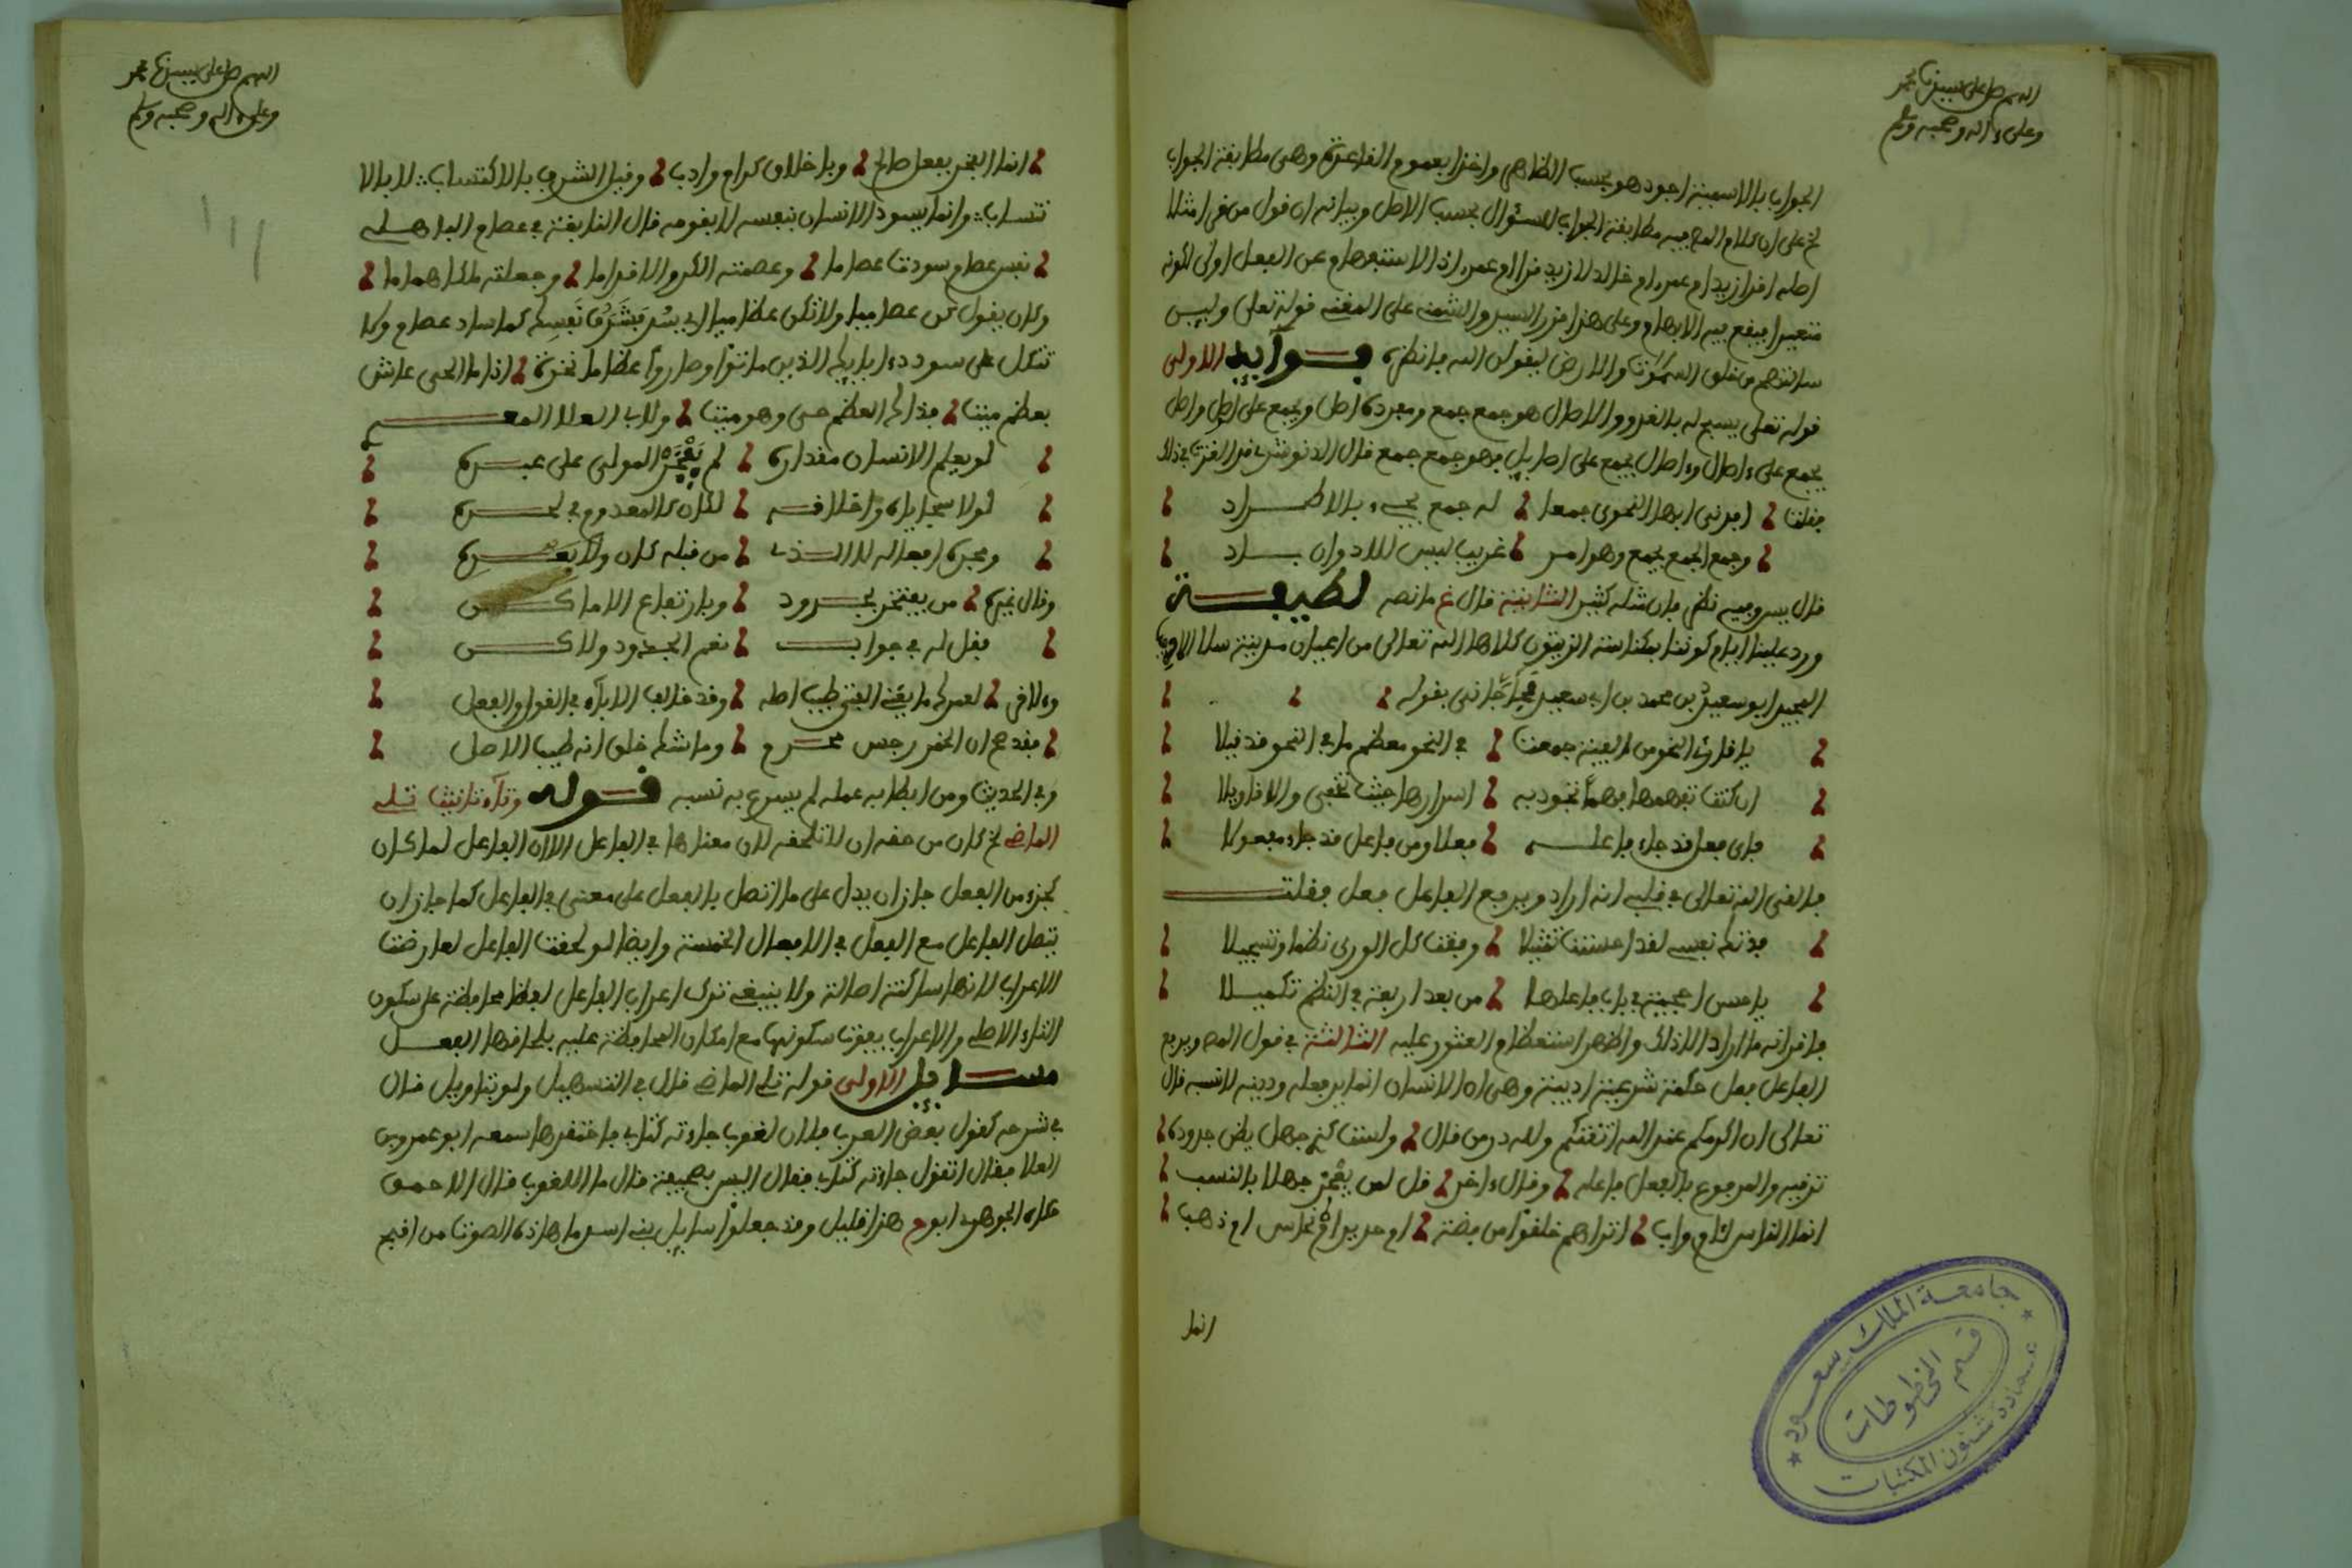 اللهم صل على نبينا محمد
وعلى ءاله وصحبه وسلم
الجواب بالاسمية اجود هو بحسب الظاهر واخذا بعموم القاعدة وهى مطابقة الجواب
على ان كلام العرب فيه مطابقة الجواب للسؤال بحسب الاصل وبيانه ان قول من قرا مثلا
اصله اقرا زيد ام عمرو ام خالد لا زيد قرا ام عمرو اذ الاستفهام عن الفعل اولى لكونه
متغيرا فيقع فيه الابهام وعلى هذا قرر السيد والشمنى على المغنى قوله تعلى وليس
سالتهم من خلق السموات والارض ليقولن الله فانظره فوايد الاولى
قوله تعلى يسبح له بالغدو والاصال هو جمع جمع ومفرده اصل ويجمع على اصل واصل
يجمع على ءاصال وءاصال يجمع على اصاييل فهو جمع جمع جمع قال الدنوشرى فى ذلك
فقلنا اجرنى ايها النحوى جمعا له جمع يجىء بالاطراد
وجمع الجمع يجمع وهو امر غريب ليس للادوان باد
قال يس وفيه نظر فان مثله كثير الثانية قال غ ما نصه لطيفة
ورد علينا ايام كوننا بمكناسة الزيتون كلاها الله تعالى من اعيان مدينة سلا الاديب
المجيد ابو سعيد بن محمد بن ابى سعيد فحاجانى بقوله
يا قارئ النحو من الفية جمعت فى النحو معظم ما فى النحو قد قيلا
ان كنت تفهمها فهما تجود به اسرارها حيث تخفى والاقاويلا
فاى فعل قد جاء فاعله فعلا ومن فاعل قد جاء مفعولا
فالقى الله تعالى فى قلبى انه اراد ويرفع الفاعل فعل فقلت
فدتك نفسى لقد احسنت تمثيلا وفقت كل الورى نظما وتسجيلا
يا حسن احجية فى باب فاعلها من بعد اربعة فى النظم تكميلا
فاقر انه ما اراد الا ذلك واظهر استعظام العثور عليه الثالثة فى قول المص ويرفع
الفاعل فعل حكمة شرعية ادبية وهى ان الانسان انما يرفعه ودينه لا نسبه قال
تعالى ان اكرمكم عند الله اتقيكم ولله در من قال ولست كمن جهل يظن جدوده
ترقيه والمرفوع بالفعل فاعله وقال ءاخر قل لمن يفخر جهلا بالنسب
انما الناس لام واب اتراهم خلقوا من فضة ام حديد ام نحاس ام ذهب
انما
جامعة الملك سعود
قسم المخطوطات
عمادة شئون المكتبات
اللهم صل على نبينا محمد
وعلى ءاله وصحبه وسلم
انما الفخر بفعل صالح وباخلاق كرام وادب وقيل الشرف بالاكتساب لا بالا
نتساب وانما يسود الانسان بنفسه لا بقومه قال النابغة فى عصام الباهلى
نفس عصام سودت عصاما وعلمته الكر والاقداما وجعلته ملكا هماما
وكان يقول كن عصاميا ولا تكن عظاميا اى بشرف نفسك كما ساد عصام ولا
تتكل على سودد ءابايك الذين ماتوا وصاروا عظاما نخرة اذا ما الحى عاش
بعظم ميت فذاك العظم حى وهو ميت ولابى العلا المعرى
لو يعلم الانسان مقداره لم يفخر المولى على عبده
لولا سجاياه واخلاقه لكان كالمعدوم فى لحده
ومجده افعاله لا الذى من قبله كان ولا بعده
وقال غيره من يفتخر بجدود وبارتفاع الاماكن
فقل له فى جواب نعم الجدود ولاكن
وءلاخر لعمرك ما يغنى الفتى طيب اصله وقد خالف الاباء فى القول والفعل
فقد صح ان الخمر رجس محرم وما شك خلق انه طيب الاصل
وفى الحديث ومن ابطا به عمله لم يسرع به نسبه قوله وتاء تانيث تلى
الماضى كان من حقه ان لا تلحقه لان معناها فى الفاعل الا ان الفاعل لما كان
كجزء من الفعل جاز ان يدل على ما اتصل بالفعل على معنى فى الفاعل كما جاز ان
يتصل الفاعل مع الفعل فى الافعال الخمسة وايضا لو لحقت الفاعل لعارضت
الاعراب لانها ساكنة اصالة ولا ينبغى ترك اعراب الفاعل لفظا محافظة على سكون
التاء الاصلى والاعراب يفوت سكونها مع امكان المحافظة عليه بلحاقها الفعل
مسايل الاولى قوله تلى الماضى قال فى التسهيل ولو بتاويل قال
فى شرحه كقول بعض العرب فلان لغوب جاءته كتابى فاحتقرها سمعه ابو عمرو بن
العلا فقال اتقول جاءته كتابى فقال اليس بصحيفة قال ما اللغوب قال الاحمق
حكاه الجوهرى ابو ح هذا قليل وقد جعلوا سايل بنى اسد ما هاذه الصوت من اقبح